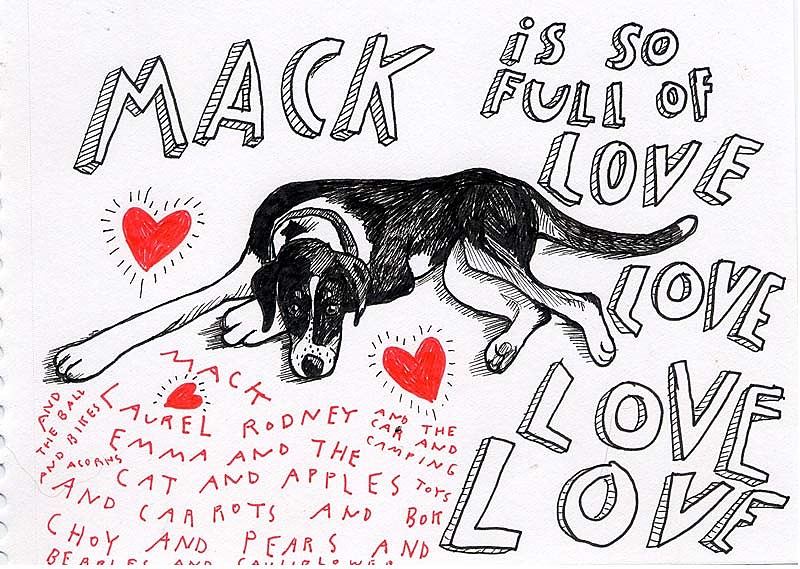 MACK
is SO
FULL OF
LOVE
LOVE
LOVE
LOVE
MACK
LAUREL RODNEY
EMMA AND THE
CAT AND APPLES
AND CARROTS AND BOK
CHOY AND PEARS AND
AND
THE BALL
AND BIKES
ACORNS
AND THE
CAR AND
CAMPING
TOYS